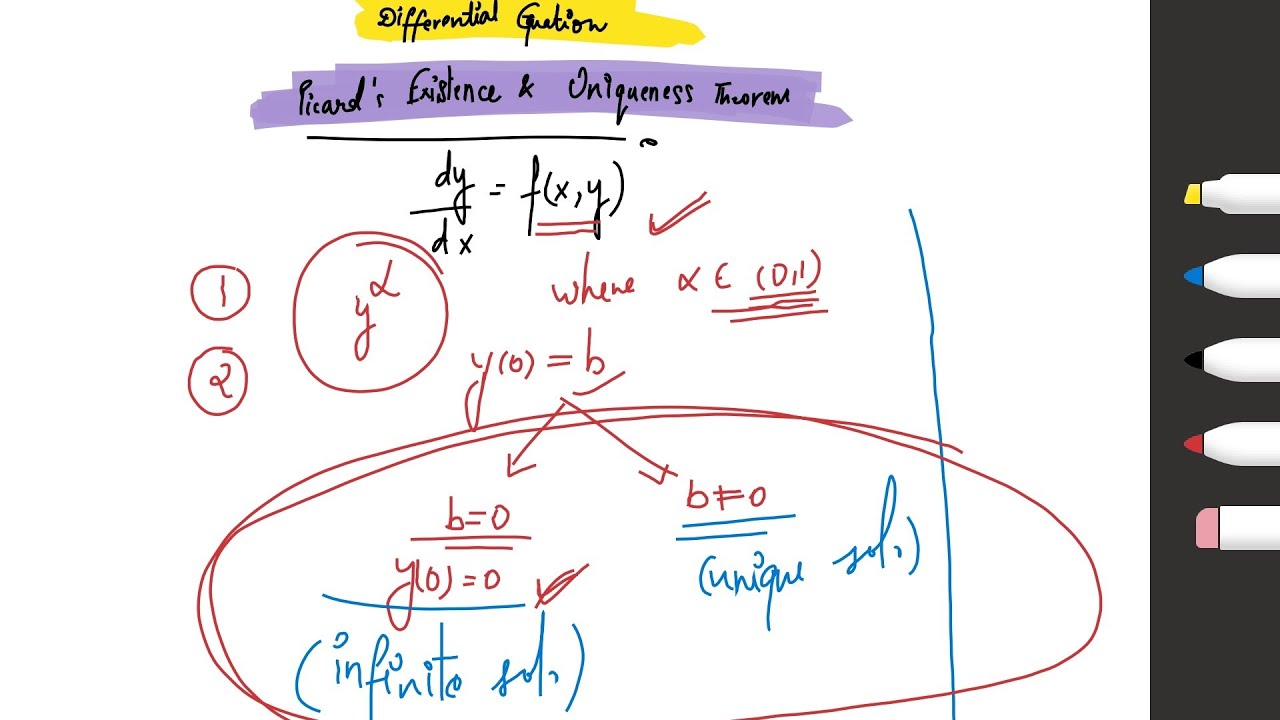 Differential Equation
Picard's Existence & Uniqueness Theorem
dy/dx = f(x,y)
1
y^α where α ∈ (0,1)
2
y(0) = b
b=0
b≠0
y(0)=0
(unique sol.)
(infinite sol.)